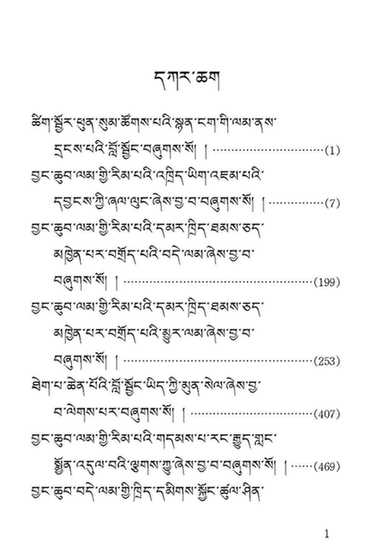 དཀར་ཆག
ཚིག་སྦྱོར་ཕུན་སུམ་ཚོགས་པའི་སྙན་ངག་གི་ལམ་ནས་
དྲངས་པའི་བློ་སྦྱོང་བཞུགས་སོ། །······························(1)
བྱང་ཆུབ་ལམ་གྱི་རིམ་པའི་འཁྲིད་ཡིག་འཇམ་པའི་
དབྱངས་ཀྱི་ཞལ་ལུང་ཞེས་བྱ་བ་བཞུགས་སོ། །···············(7)
བྱང་ཆུབ་ལམ་གྱི་རིམ་པའི་དམར་ཁྲིད་ཐམས་ཅད་
མཁྱེན་པར་བགྲོད་པའི་བདེ་ལམ་ཞེས་བྱ་བ་
བཞུགས་སོ། །···················································(199)
བྱང་ཆུབ་ལམ་གྱི་རིམ་པའི་དམར་ཁྲིད་ཐམས་ཅད་
མཁྱེན་པར་བགྲོད་པའི་མྱུར་ལམ་ཞེས་བྱ་བ་
བཞུགས་སོ། །···················································(253)
ཐེག་པ་ཆེན་པོའི་བློ་སྦྱོང་ཡིད་ཀྱི་མུན་སེལ་ཞེས་བྱ་
བ་ལེགས་པར་བཞུགས་སོ། །·································(407)
བྱང་ཆུབ་ལམ་གྱི་རིམ་པའི་གདམས་པ་རང་རྒྱུད་གླང་
སྨྱོན་འདུལ་བའི་ལྕགས་ཀྱུ་ཞེས་བྱ་བ་བཞུགས་སོ། །······(469)
བྱང་ཆུབ་བདེ་ལམ་གྱི་ཁྲིད་དམིགས་སྐྱོང་ཚུལ་ཤིན་
1